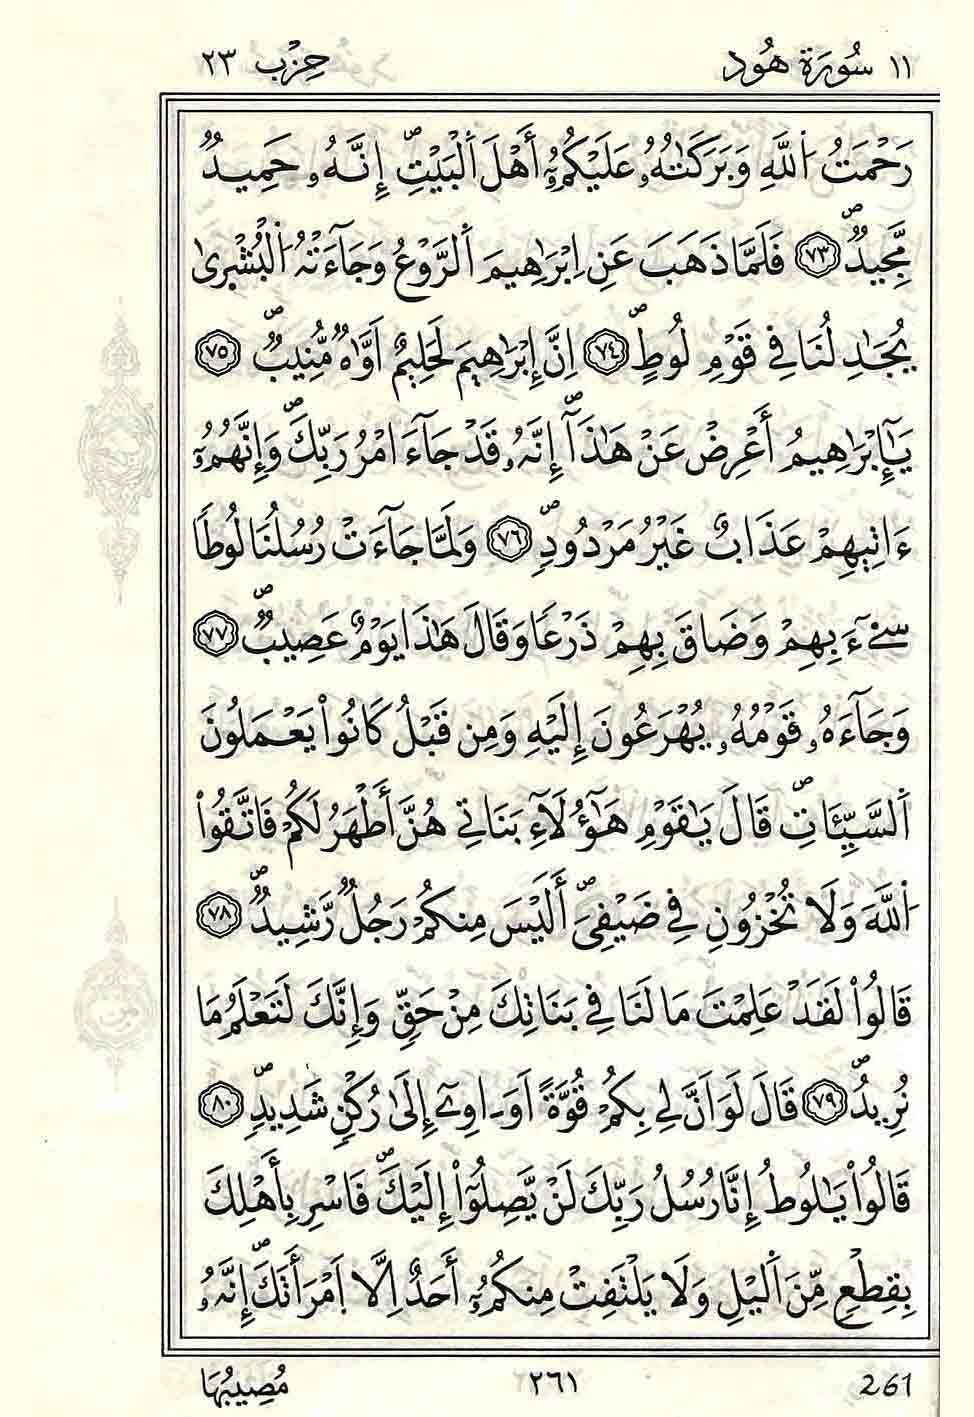 ١١ سُورَة هُود
حِزْب ٢٣
رَحْمَتُ اُ۬للَّهِ وَبَرَكَٰتُهُۥ عَلَيْكُمُۥٓ أَهْلَ اَ۬لْبَيْتِۖ إِنَّهُۥ حَمِيدٞ
مَّجِيدٞۖ ٧٣ فَلَمَّا ذَهَبَ عَنِ اِبْرَٰهِيمَ اَ۬لرَّوْعُ وَجَآءَتْهُ اُ۬لْبُشْر۪ىٰ
يُجَٰدِلُنَا فِي قَوْمِ لُوطٍۖ ٧٤ اِنَّ إِبْرَٰهِيمَ لَحَلِيمٌ اَوَّٰهٞ مُّنِيبٞۖ ٧٥
يَٰٓإِبْرَٰهِيمُ أَعْرِضْ عَنْ هَٰذَآۖ إِنَّهُۥ قَدْ جَآءَ امْرُ رَبِّكَۖ وَإِنَّهُمُۥٓ
ءَاتِيهِمْ عَذَابٌ غَيْرُ مَرْدُودٖۖ ٧٦ وَلَمَّا جَآءَتْ رُسُلُنَا لُوطاٗ
سِےٓءَ بِهِمْ وَضَاقَ بِهِمْ ذَرْعاٗ وَقَالَ هَٰذَا يَوْمٌ عَصِيبٞۖ ٧٧
وَجَآءَهُۥ قَوْمُهُۥ يُهْرَعُونَ إِلَيْهِ وَمِن قَبْلُ كَانُواْ يَعْمَلُونَ
اَ۬لسَّيِّـَٔاتِۖ قَالَ يَٰقَوْمِ هَٰٓؤُلَآءِ بَنَاتِي هُنَّ أَطْهَرُ لَكُمْ فَاتَّقُواْ
اُ۬للَّهَ وَلَا تُخْزُونِ فِي ضَيْفِيَۖ أَلَيْسَ مِنكُمْ رَجُلٞ رَّشِيدٞۖ ٧٨
قَالُواْ لَقَدْ عَلِمْتَ مَا لَنَا فِي بَنَاتِكَ مِنْ حَقٍّ وَإِنَّكَ لَتَعْلَمُ مَا
نُرِيدُۖ ٧٩ قَالَ لَوَ اَنَّ لِي بِكُمْ قُوَّةً اَوَ اٰوِےٓ إِلَىٰ رُكْنٖ شَدِيدٖۖ ٨٠
قَالُواْ يَٰلُوطُ إِنَّا رُسُلُ رَبِّكَ لَنْ يَّصِلُوٓاْ إِلَيْكَۖ فَاسْرِ بِأَهْلِكَ
بِقِطْعٖ مِّنَ اَ۬ليْلِ وَلَا يَلْتَفِتْ مِنكُمُۥٓ أَحَدٌ اِلَّا اَ۪مْرَأَتَكَۖ إِنَّهُۥ
مُصِيبُهَا
٢٦١
261